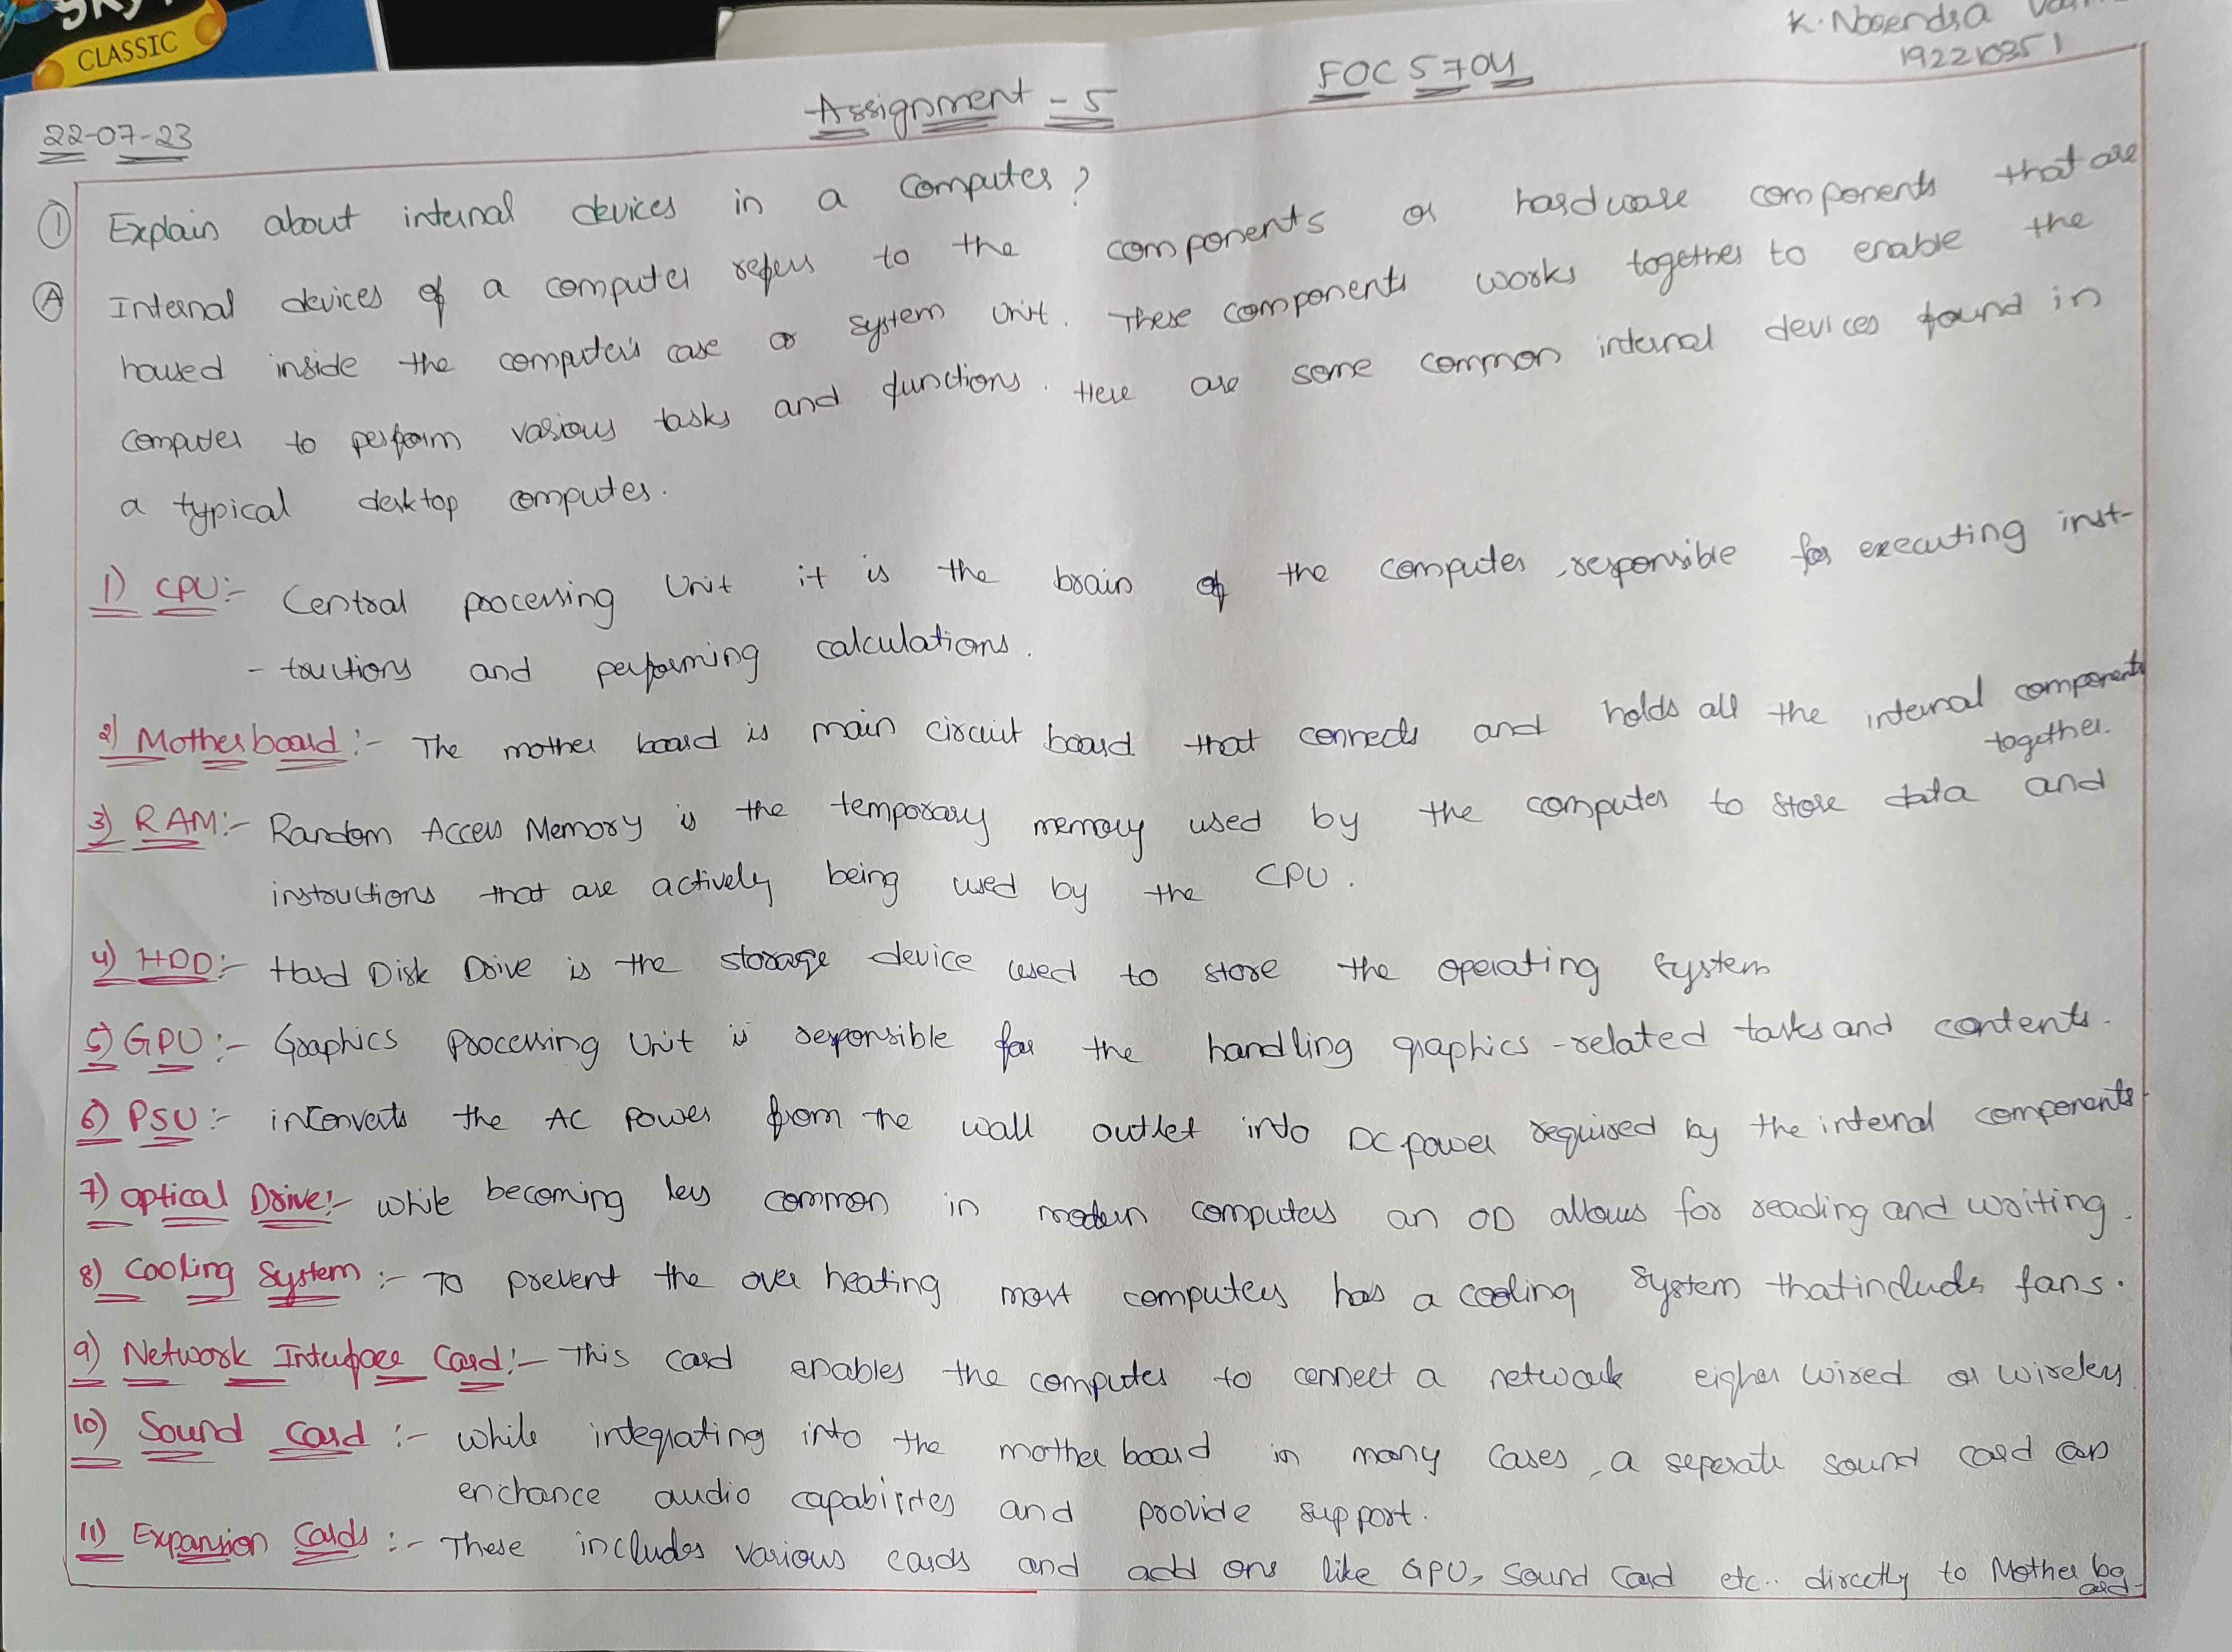 SKY
CLASSIC
K. Narendra
192210351
FOC 5704
Assignment - 5
22-07-23
① Explain about internal devices in a computer?
Ⓐ Internal devices of a computer refers to the components or hardware components that are
housed inside the computer's case or system unit. These components works together to enable the
computer to perform various tasks and functions. Here are some common internal devices found in
a typical desktop computer.
1) CPU:- Central processing Unit it is the brain of the computer, responsible for executing inst-
- tructions and performing calculations.
2) Motherboard :- The mother board is main circuit board that connects and holds all the internal components
together.
3) RAM:- Random Access Memory is the temporary memory used by the computer to store data and
instructions that are actively being used by the CPU.
4) HDD:- Hard Disk Drive is the storage device used to store the operating system
5) GPU :- Graphics Processing Unit is responsible for the handling graphics-related tasks and contents.
6) PSU :- inConverts the AC Power from the wall outlet into DC power required by the internal components.
7) Optical Drive:- while becoming less common in modern computers an OD allows for reading and writing.
8) Cooling System :- To prevent the over heating most computers has a cooling system that includes fans.
9) Network Interface Card:- This card enables the computer to connect a network eigher wired or wireless
10) Sound Card :- while integrating into the mother board in many cases, a seperate sound card can
enchance audio capabiities and provide support.
11) Expansion Cards :- These includes various cards and add ons like GPU, Sound Card etc.. directly to Mother bo
ard-